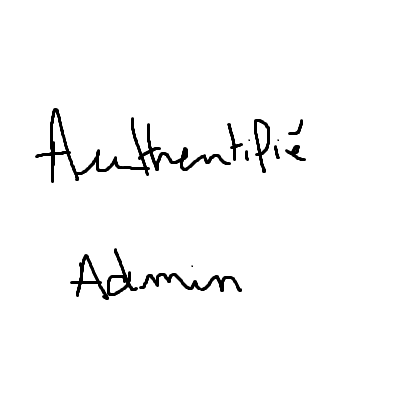 Authentifié
Admin